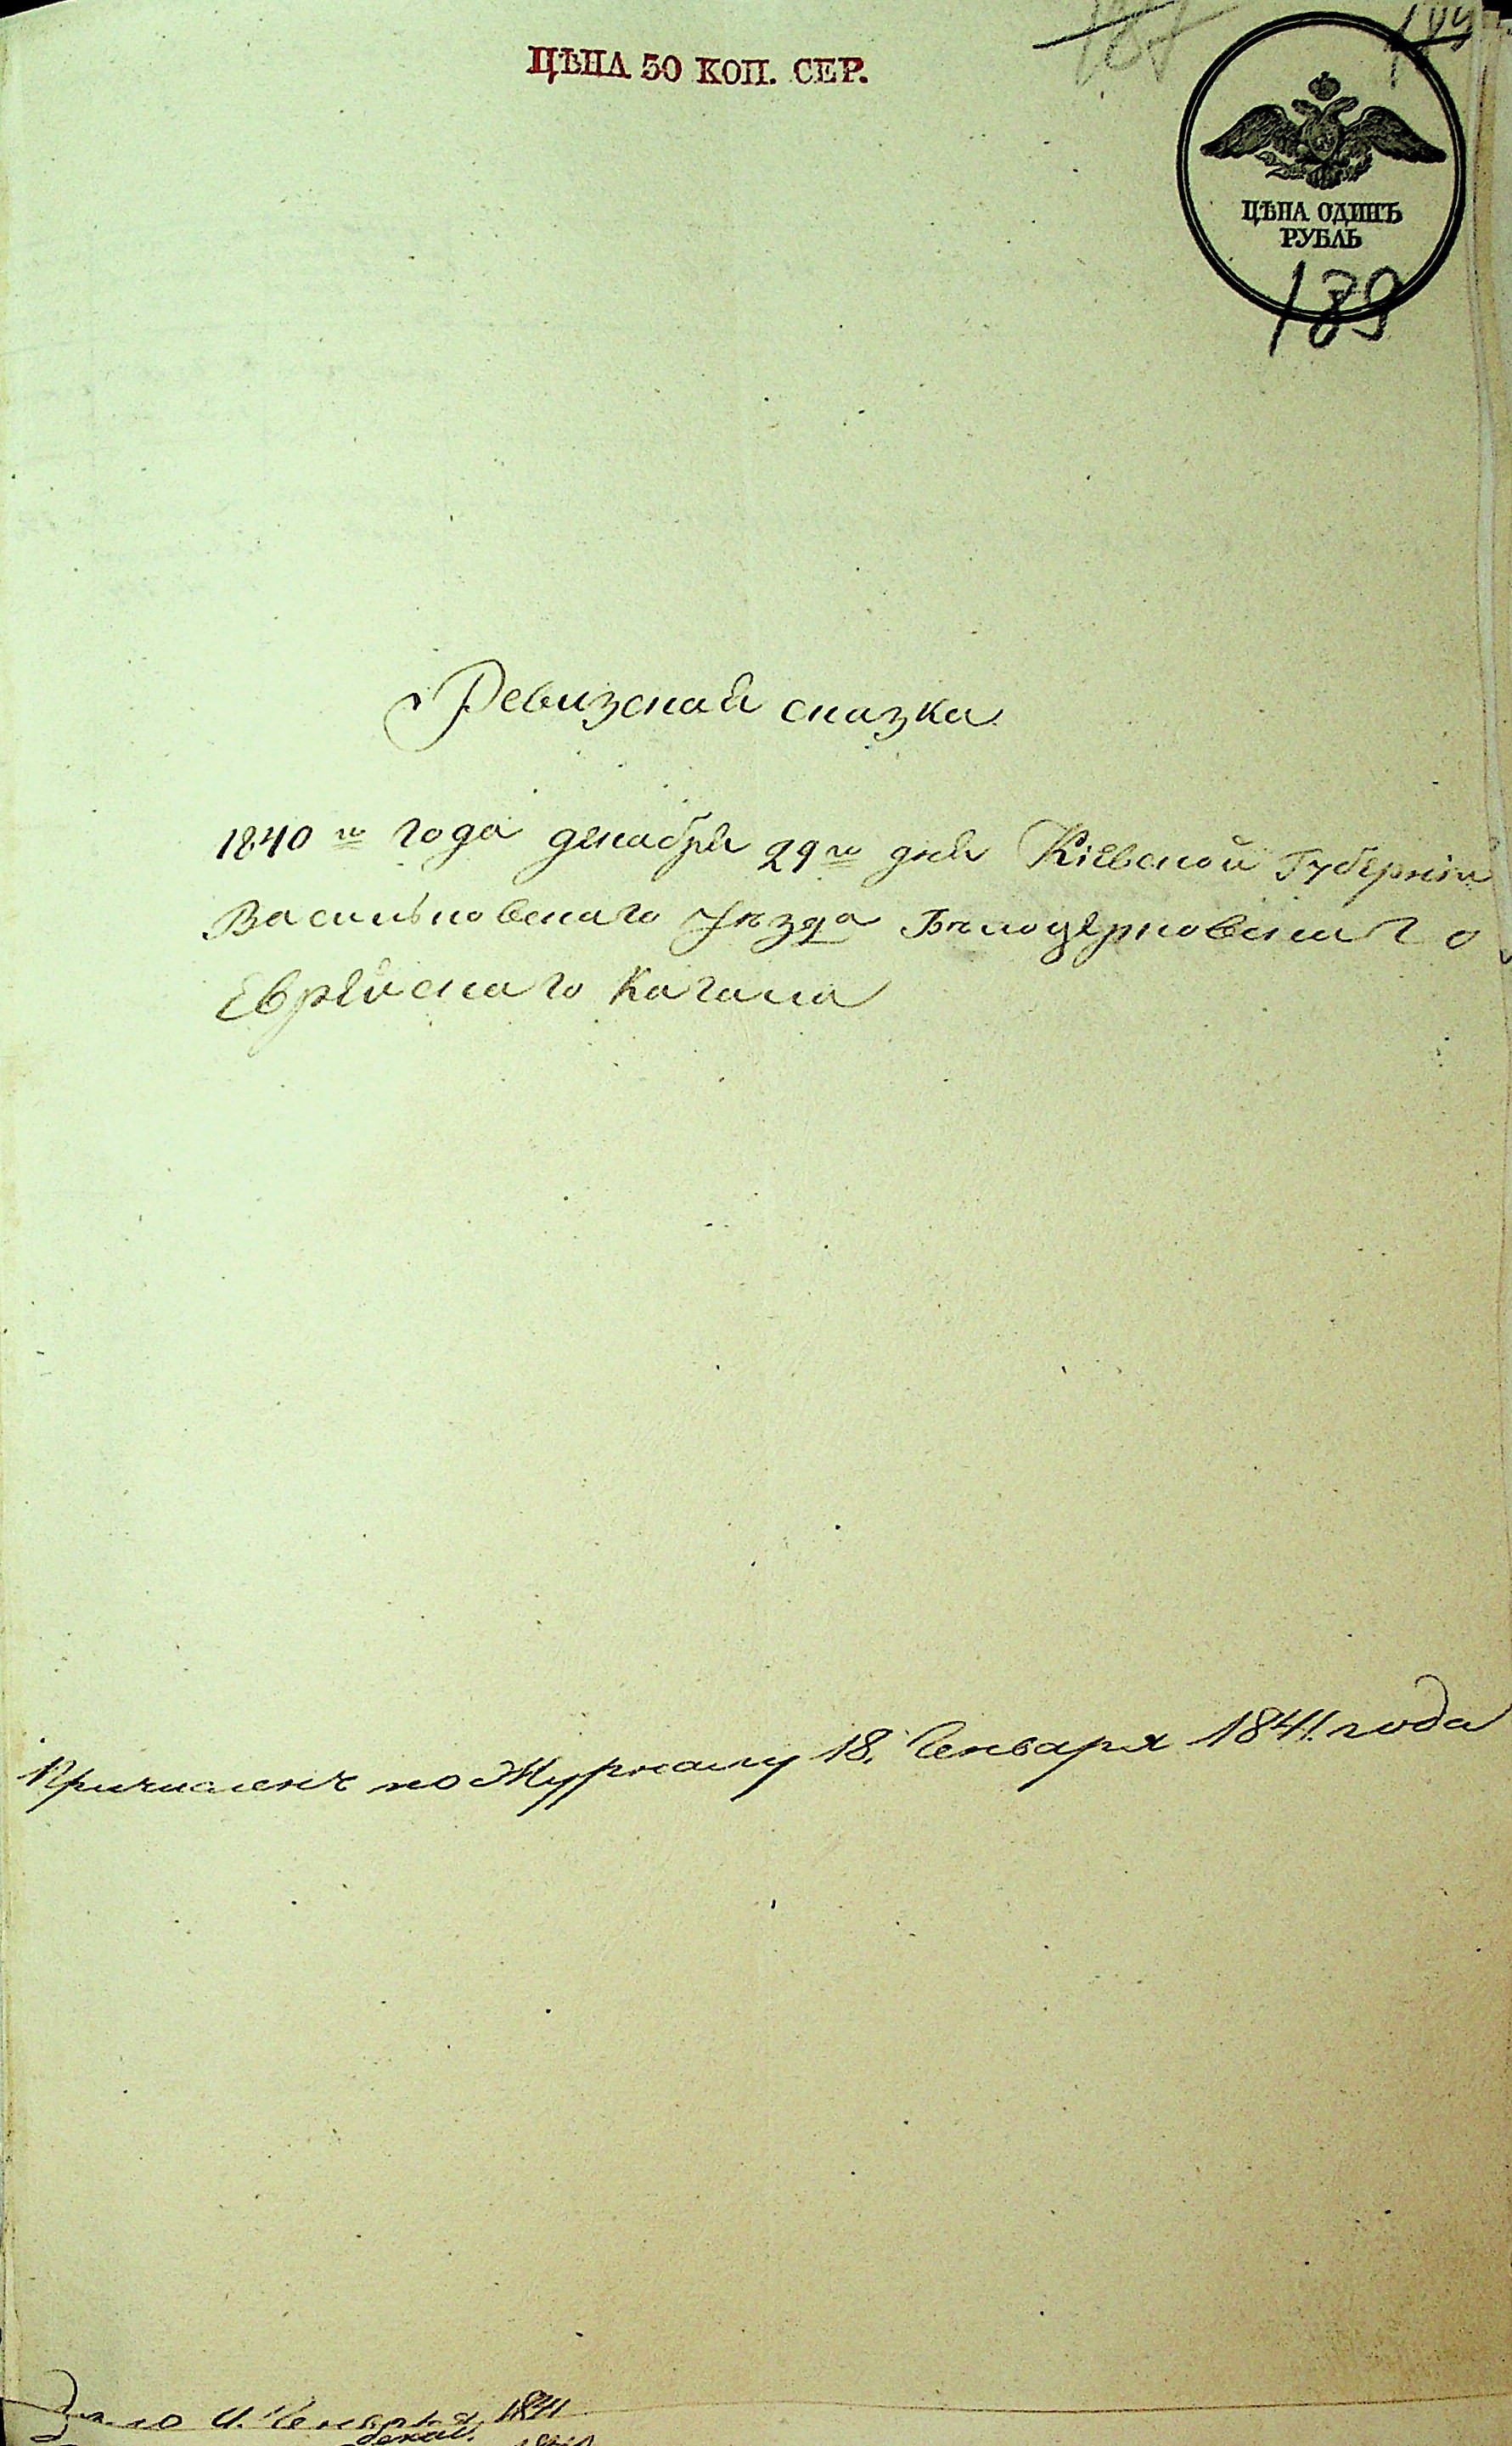 ЦѢНА 50 КОП. СЕР.
187
ЦѢНА ОДИНЪ
РУБЛЬ
189
Ревизская сказка
1840го года декабря 29го дня Кіевской Губерніи
Васильковскаго Уѣзда Бѣлоцерковскаго
Еврейскаго Кагала
Причисленъ по Журналу 18. Генваря 1841. года
Генваря 1841
декаб.